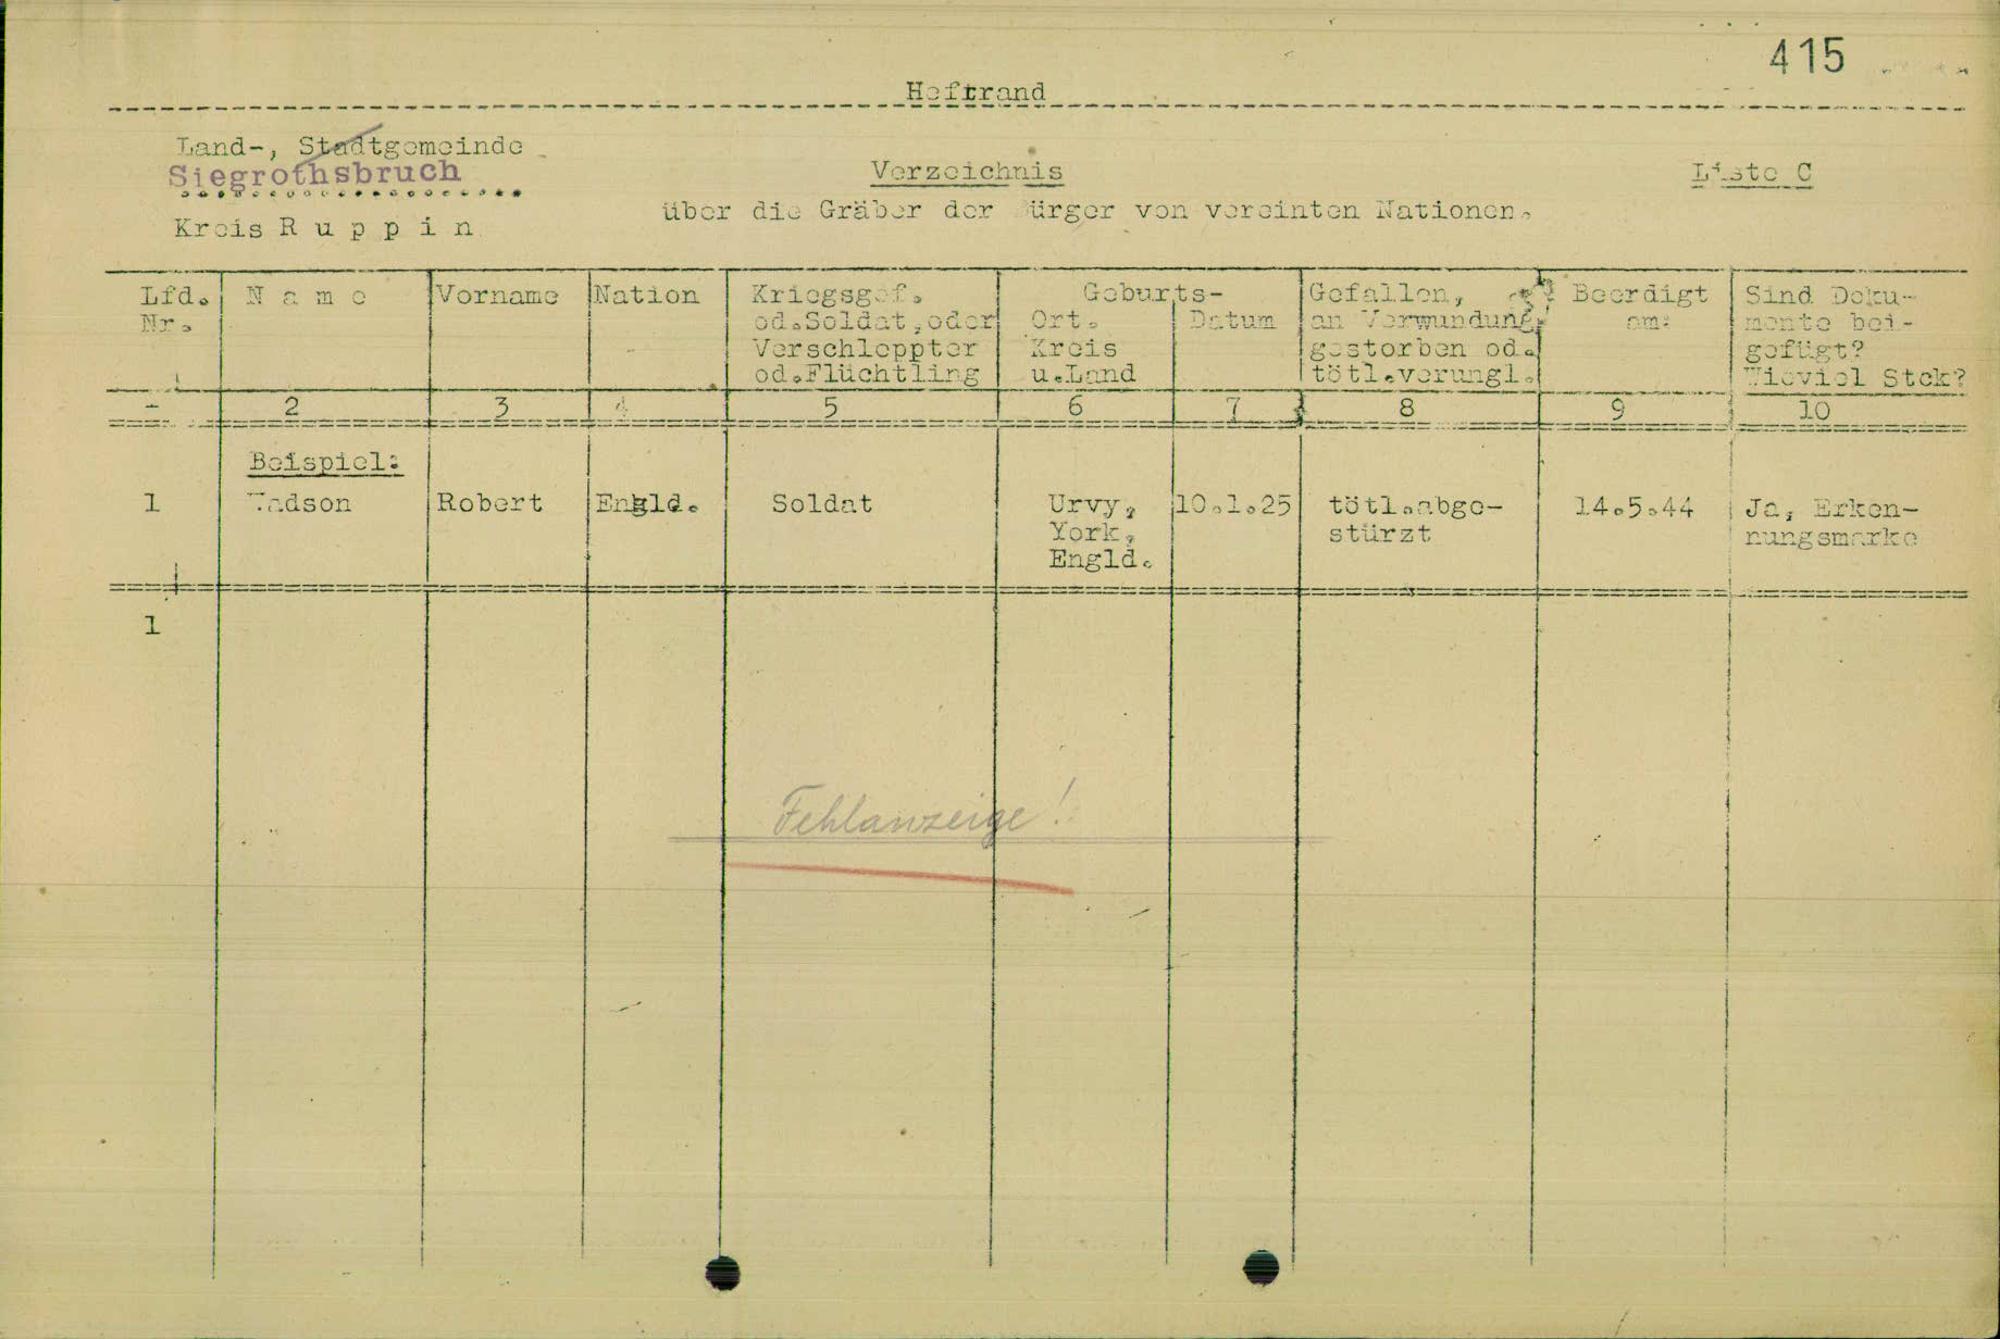 415
Heftrand
Land-, Stadtgemeinde
Siegrothsbruch
Kreis R u p p i n
Verzeichnis
über die Gräber der Bürger von vereinten Nationen.
Liste C
Lfd. Nr.
N a m e
Vorname
Nation
Kriegsgef.
od.Soldat,oder
Verschleppter
od.Flüchtling
Geburts-
Ort.
Kreis
u.Land
Datum
Gefallen,
an Verwundung
gestorben od.
tötl.verungl.
Beerdigt
am:
Sind Doku-
mente bei-
gefügt?
Wieviel Stck?
2 3 4 5 6 7 8 9 10
Beispiel:
1 Robert Engld. Soldat Urvy, 10.1.25 tötl.abge- 14.5.44 Ja, Erken-
York, stürzt nungsmarke
Engld.
1
Fehlanzeige!